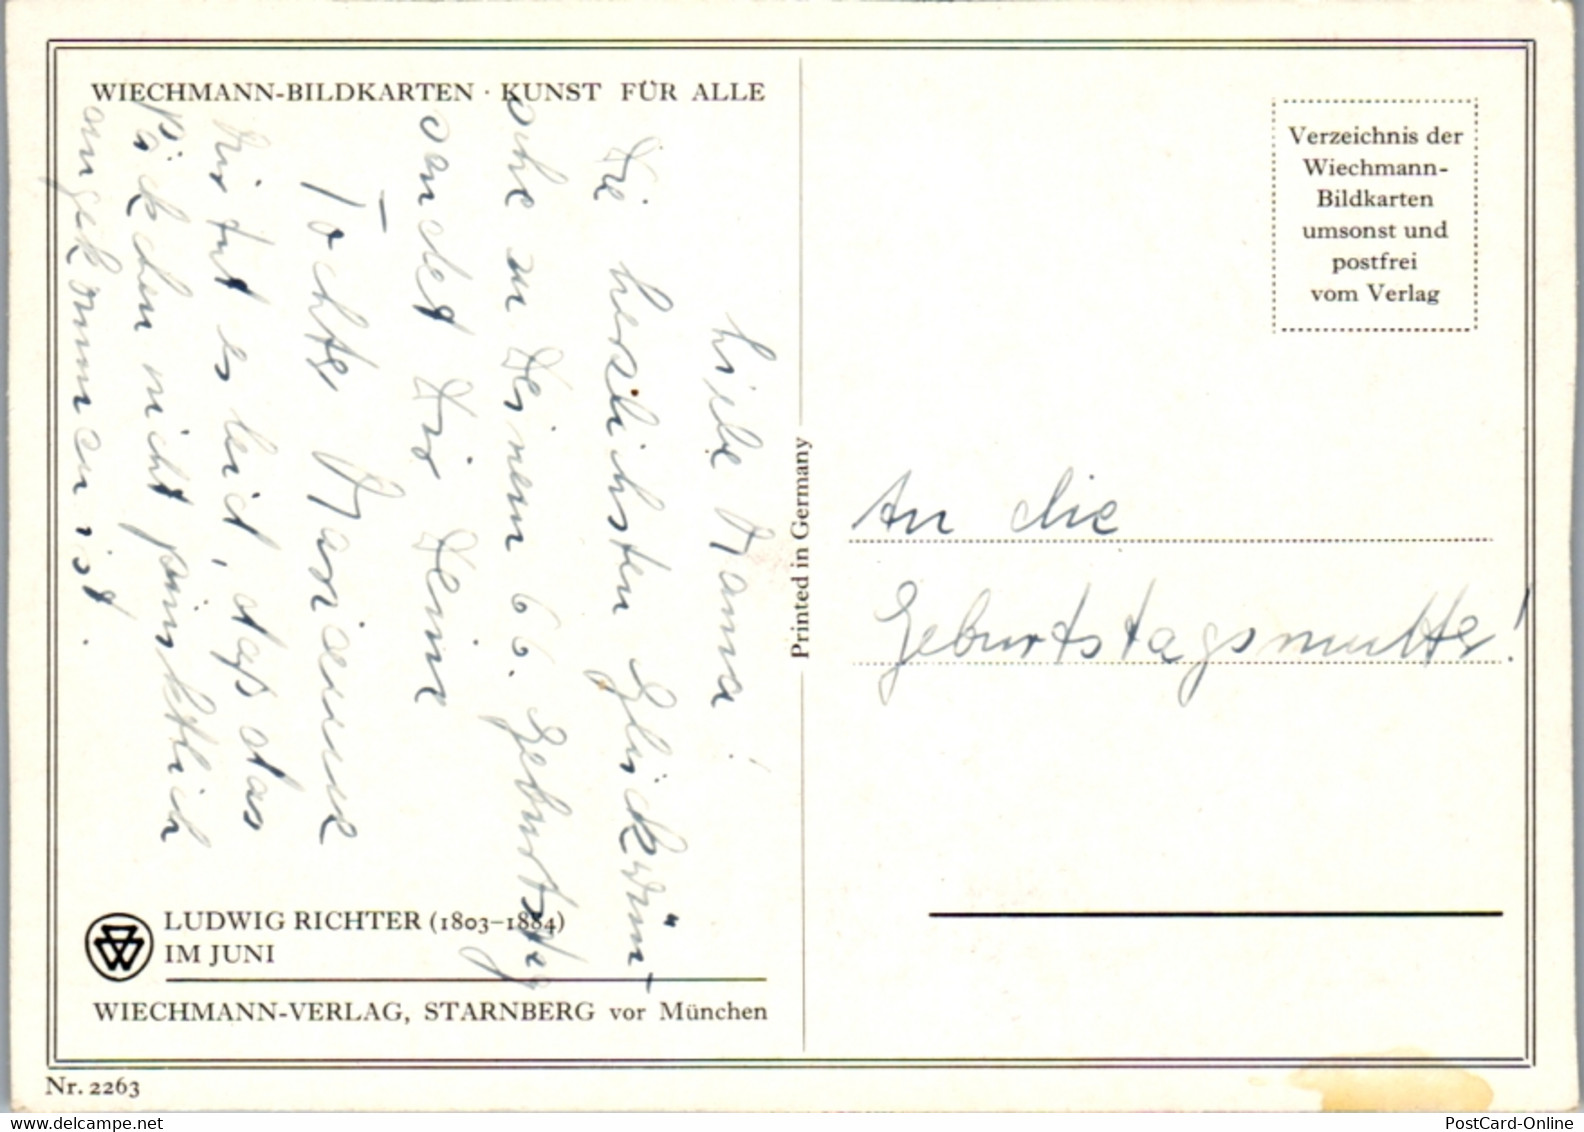 WIECHMANN-BILDKARTEN · KUNST FÜR ALLE
Liebe Mama!
Die herzlichsten Glückwün-
sche zu Deinem 66. Geburtstag
sendet Dir Deine
Tochter Marianne
Mir tut es leid, daß das
Päckchen nicht pünktlich
angekommen ist.
LUDWIG RICHTER (1803–1884)
IM JUNI
WIECHMANN-VERLAG, STARNBERG vor München
Nr. 2263
Printed in Germany
Verzeichnis der
Wiechmann-
Bildkarten
umsonst und
postfrei
vom Verlag
An die
Geburtstagsmutter!
www.delcampe.net
PostCard-Online